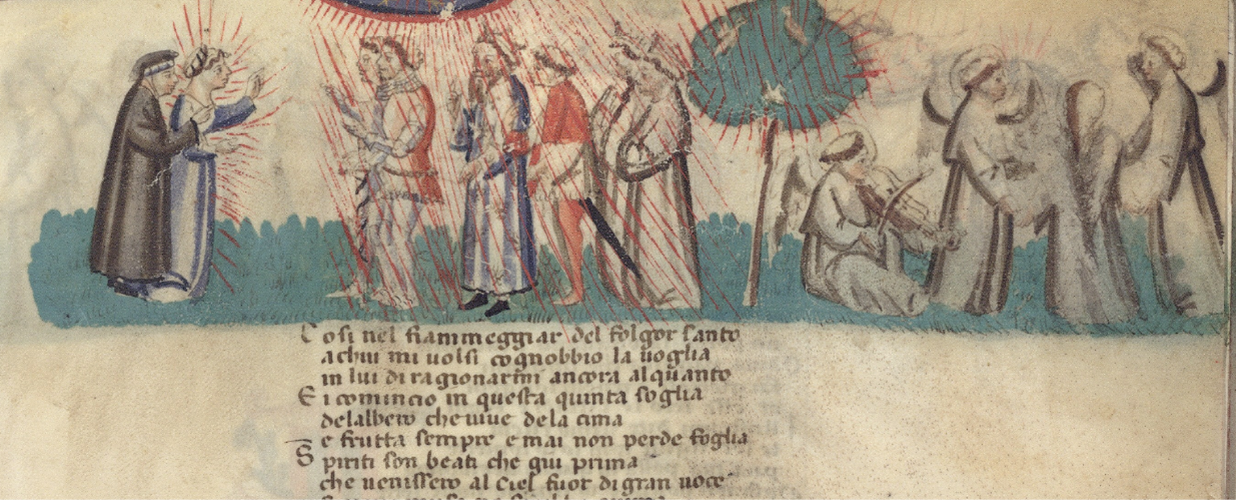 C osi nel fiammeggiar del folgor santo
achui mi uolsi cognobbio la uoglia
in lui di ragionarmi ancora alquanto
E i comincio in questa quinta soglia
delalbero che uiue de la cima
e frutta sempre e mai non perde foglia
S piriti son beati che qui prima
che uenissero al ciel fuor di gran uoce